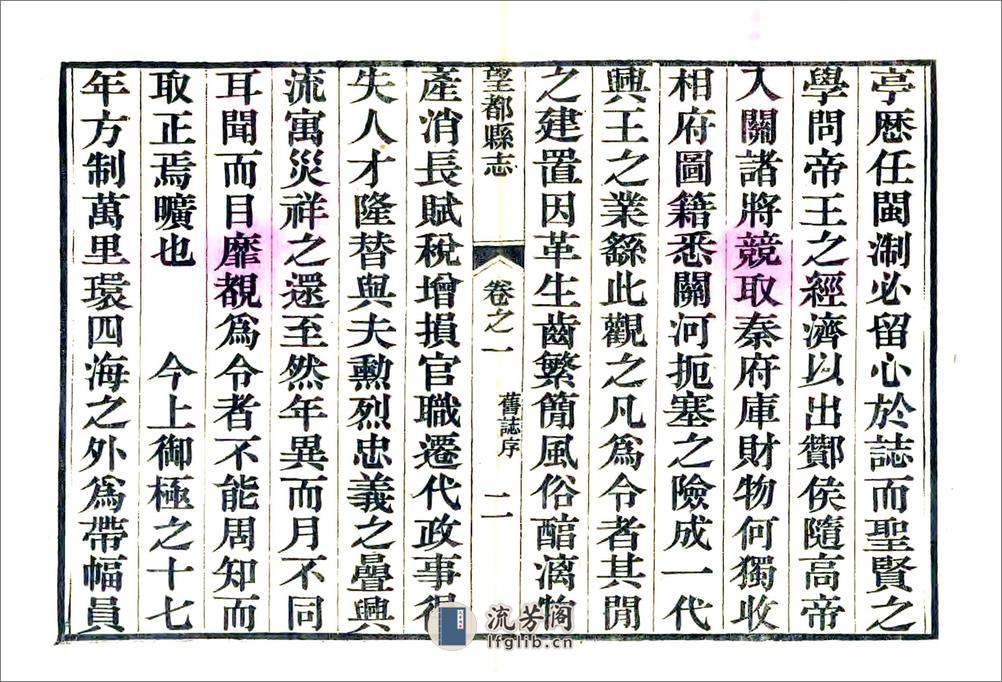 亭歷任閩浙必留心於誌而聖賢之
學問帝王之經濟以出酇侯隨高帝
入關諸將競取秦府庫財物何獨收
相府圖籍悉關河扼塞之險成一代
興王之業繇此觀之凡爲令者其閒
之建置因革生齒繁簡風俗醕漓物
望都縣志
卷之一
舊誌序
二
產消長賦稅增損官職遷代政事得
失人才隆替與夫勳烈忠義之疊興
流寓災祥之還至然年異而月不同
耳聞而目靡覩爲令者不能周知而
取正焉曠也 今上御極之十七
年方制萬里環四海之外爲帶幅員
流芳閣
lfglib.cn